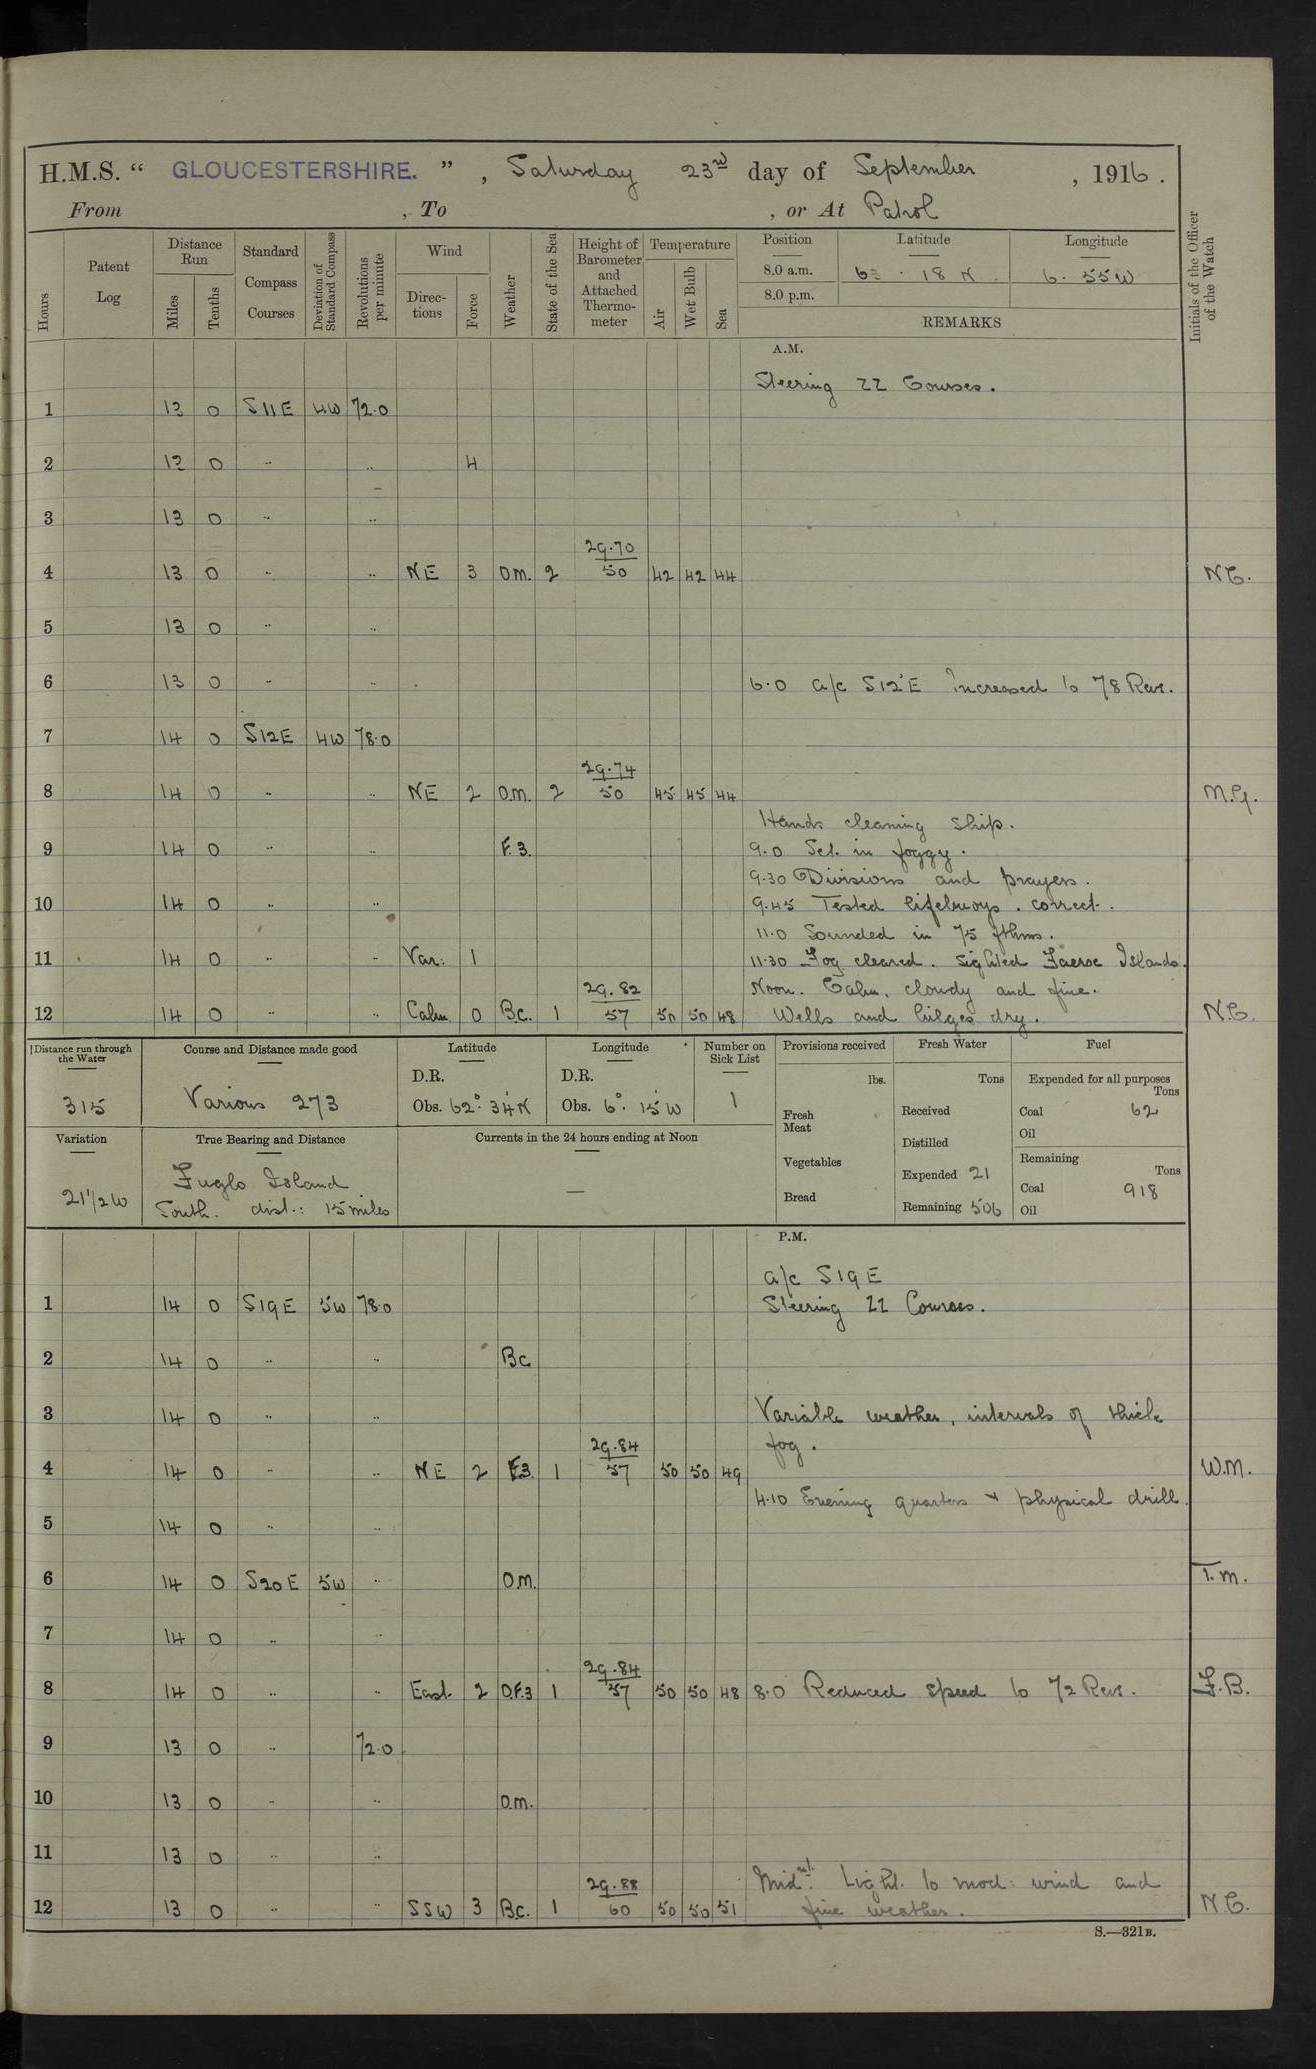 H.M.S. “ GLOUCESTERSHIRE. ” , Saturday 23rd day of September , 1916 .
From , To , or At Patrol
Hours Patent Log Distance Run Miles Tenths Standard Compass Courses Deviation of Standard Compass Revolutions per minute Wind Direc-tions Force Weather State of the Sea Height of Barometer and Attached Thermo-meter Temperature Air Wet Bulb Sea Position Latitude Longitude Initials of the Officer of the Watch
8.0 a.m. 63 · 18 N . 6 · 55 W
8.0 p.m.
REMARKS
A.M.
Steering ZZ Courses.
1 13 0 S11E 4W 72.0
2 13 0 " " 4
3 13 0 " "
4 13 0 " " NE 3 O.m. 2 29.70 50 42 42 44 N.C.
5 13 0 " "
6 13 0 " " 6.0 a/c S12°E Increased to 78 Revs.
7 14 0 S12E 4W 78.0
8 14 0 " " NE 2 O.m. 2 29.74 50 45 45 44 M.G.
Hands cleaning ship.
9 14 0 " " F.3. 9.0 Set in foggy.
9.30 Divisions and prayers.
10 14 0 " " 9.45 Tested lifebuoys. correct.
11.0 Sounded in 75 fthms.
11 14 0 " " Var: 1 11.30 Fog cleared. Sighted Faeroe Islands.
Noon. Calm, cloudy and fine.
12 14 0 " " Calm 0 B.c. 1 29.82 57 50 50 48 Wells and bilges dry. N.C.
Distance run through the Water Course and Distance made good Latitude Longitude Number on Sick List Provisions received Fresh Water Fuel
D.R. D.R. lbs. Tons Expended for all purposes Tons
315 Various 273 Obs. 62° 34' N Obs. 6° 15' W 1 Fresh Meat Received Coal 62
Distilled Oil
Variation True Bearing and Distance Currents in the 24 hours ending at Noon Vegetables Remaining Tons
21 1/2 W Fuglo Island — Expended 21 Coal 918
South. dist.: 15 miles Bread Remaining 506 Oil
P.M.
a/c S19E
1 14 0 S19E 5W 78.0 Steering ZZ Courses.
2 14 0 " " B.c.
3 14 0 " " Variable weather, intervals of thick
fog.
4 14 0 " " NE 2 F.3. 1 29.84 57 50 50 49 W.M.
4.10 Evening quarters & physical drill.
5 14 0 " "
6 14 0 S20E 5W " O.m. T.m.
7 14 0 " "
8 14 0 " " East. 2 O.F.3 1 29.84 57 50 50 48 8.0 Reduced speed to 72 Revs. F.B.
9 13 0 " 72.0
10 13 0 " " O.m.
11 13 0 " "
Midnt. Light to mod: wind and
12 13 0 " " SSW 3 B.c. 1 29.88 60 50 50 51 fine weather. N.C.
S.—321B.